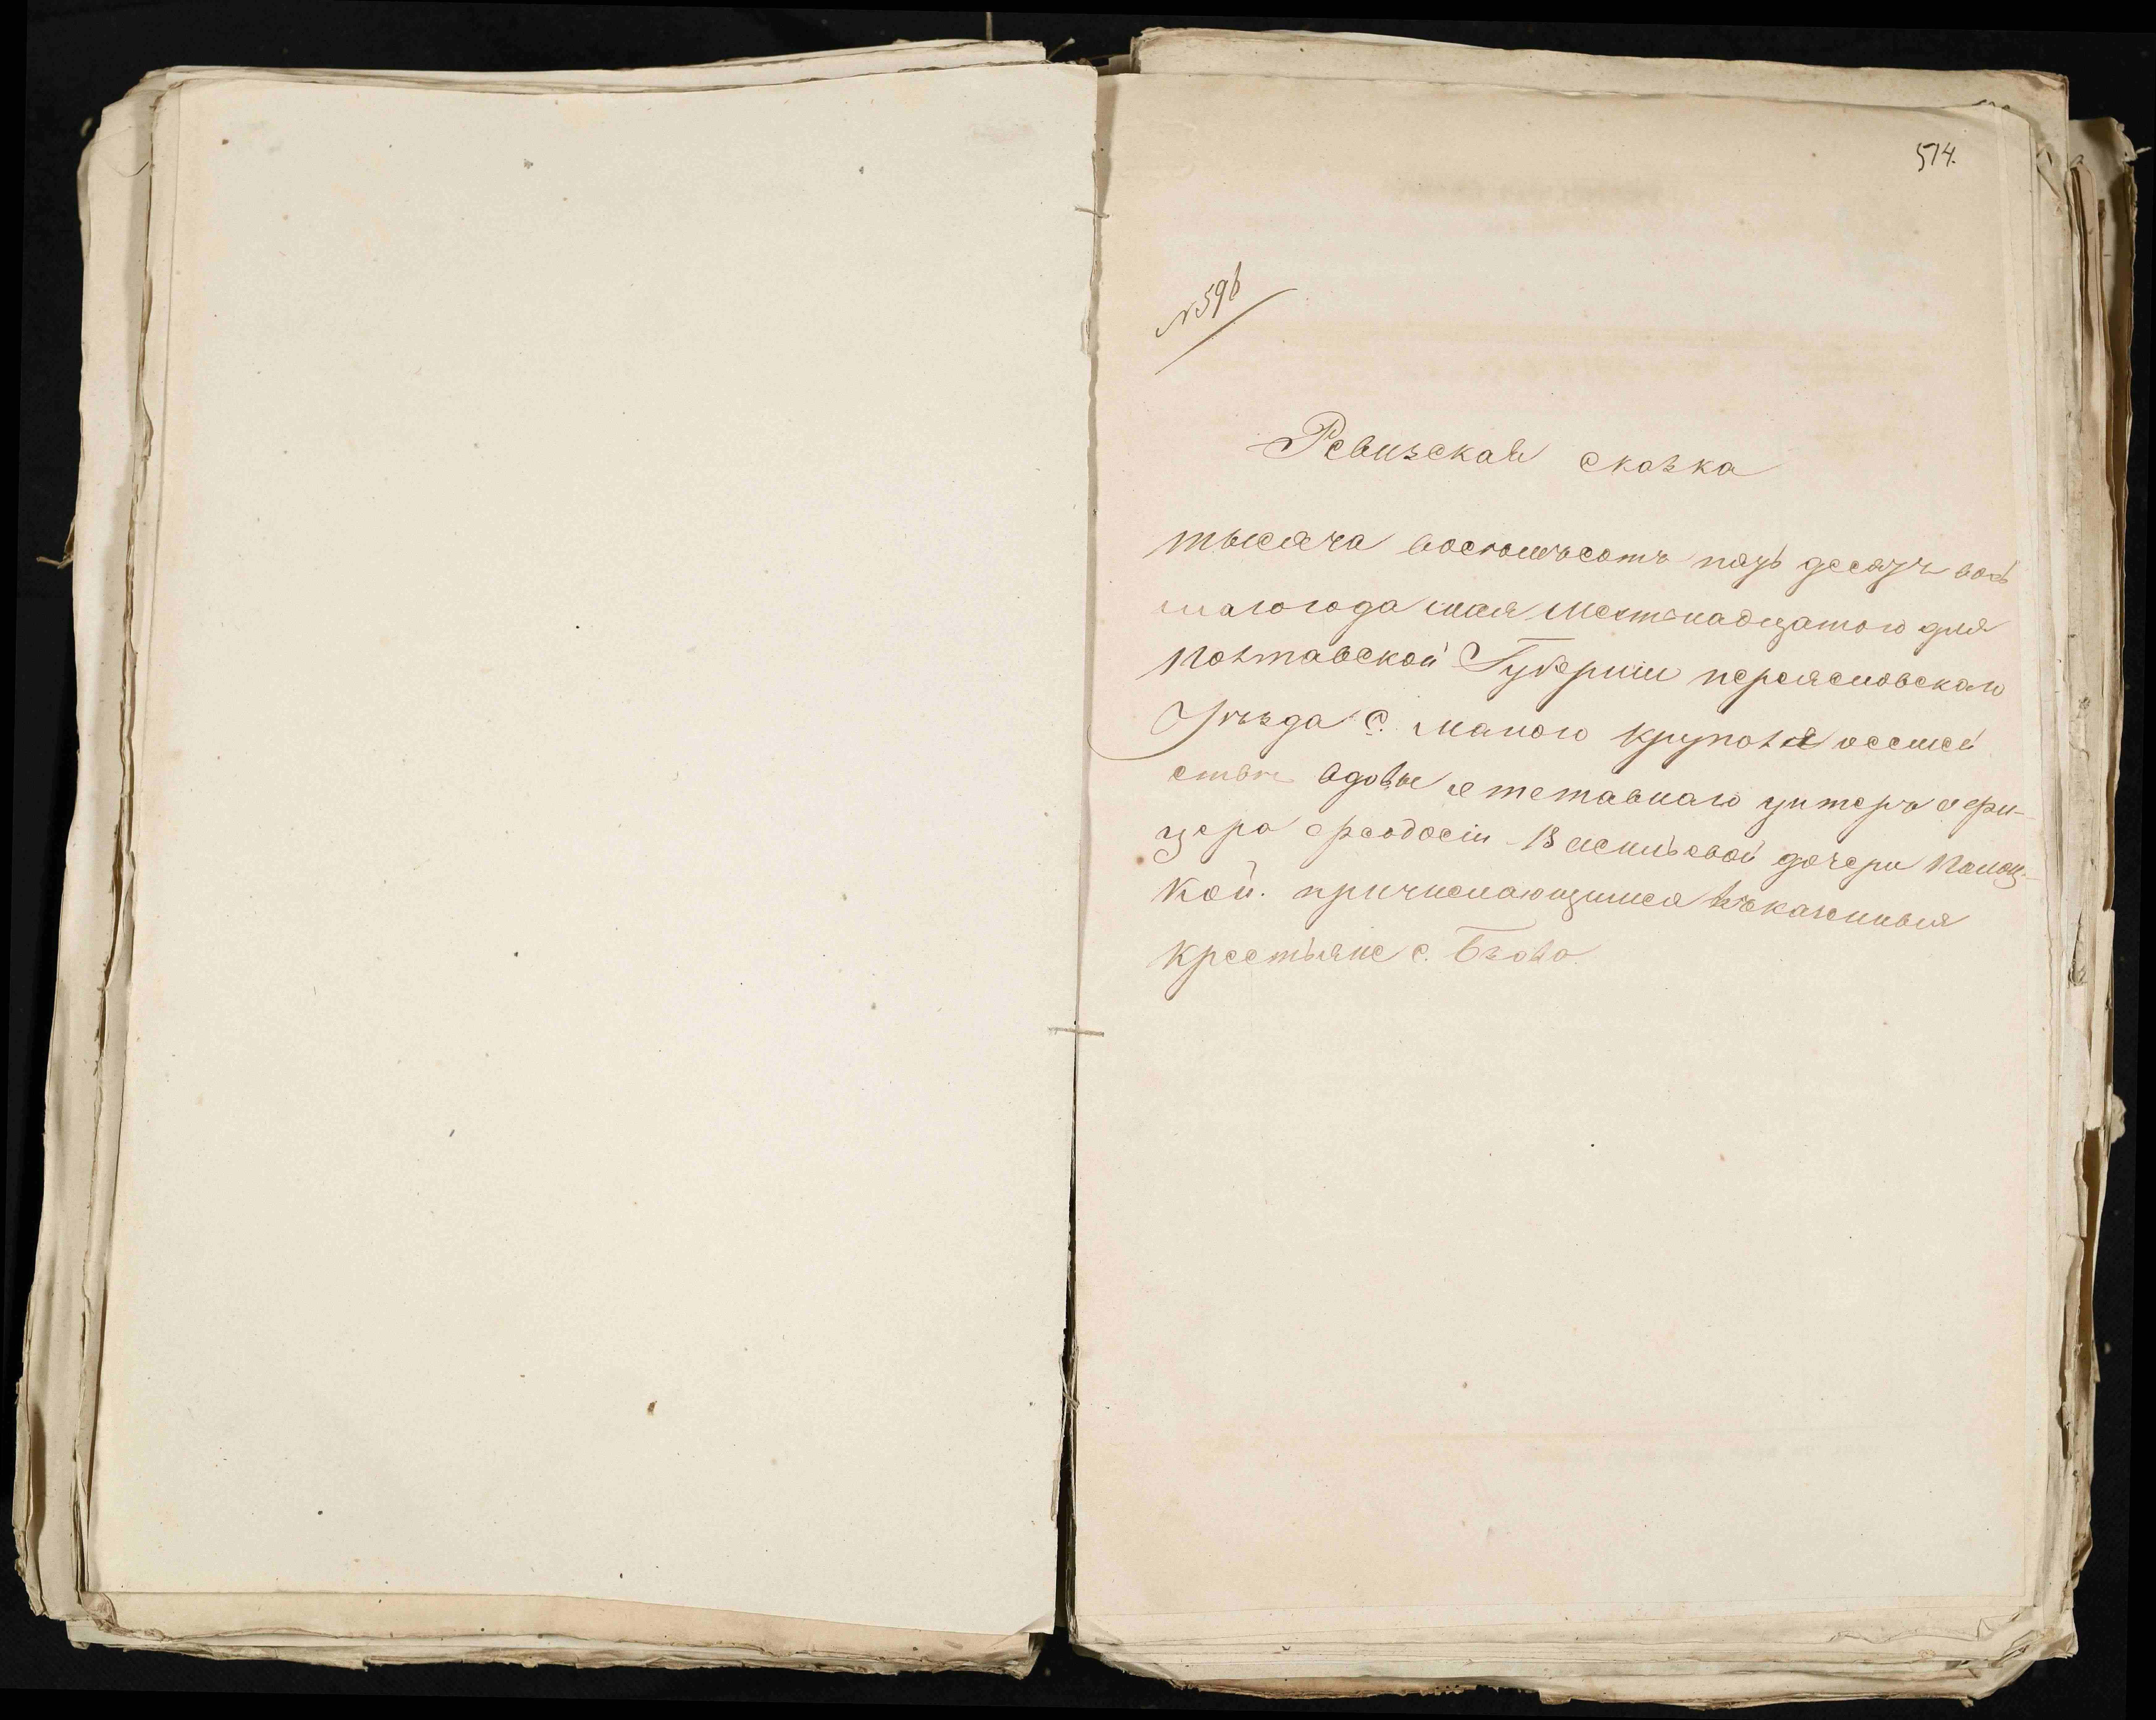 514.
№ 596
Ревизская сказка
тысяча восемьсотъ пядь десядъ вось
маго года мая шестонадцатого дня
Полтавской Губерніи переясловскаго
Уѣзда С. Малого Круполя
вдовы атставнаго унтеръ офи-
цера феодосіи Васильевой дочери
кой. причисляющимся въказенныя
крестьяне с.